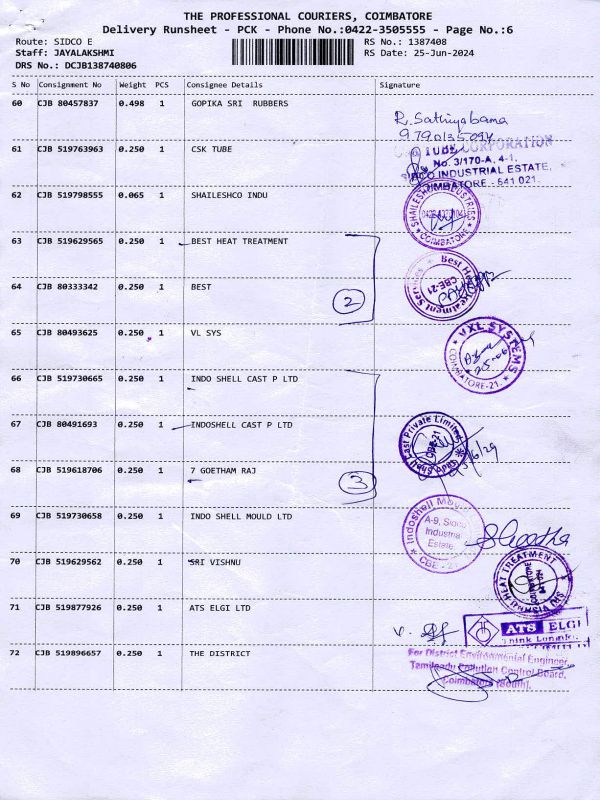 THE PROFESSIONAL COURIERS, COIMBATORE
Delivery Runsheet - PCK - Phone No.:0422-3505555 - Page No.:6
Route: SIDCO E RS No.: 1387408
Staff: JAYALAKSHMI RS Date: 25-Jun-2024
DRS No.: DCJB138740806
S No Consignment No Weight PCS Consignee Details Signature
60 CJB 80457837 0.498 1 GOPIKA SRI RUBBERS
R. Sathiyabama
61 CJB 519763963 0.250 1 CSK TUBE
TUBE CORPORATION
No. 3/170-A, 4-1,
INDUSTRIAL ESTATE,
COIMBATORE - 641 021.
62 CJB 519798555 0.065 1 SHAILESHCO INDU
SHAILESHCO INDUSTRIES
COIMBATORE
63 CJB 519629565 0.250 1 BEST HEAT TREATMENT
Best Heat Treatment Services
CBE-21
64 CJB 80333342 0.250 1 BEST
2
65 CJB 80493625 0.250 1 VL SYS
VXL SYSTEMS
COIMBATORE-21.
66 CJB 519730665 0.250 1 INDO SHELL CAST P LTD
67 CJB 80491693 0.250 1 INDOSHELL CAST P LTD
Indo Shell Cast Private Limited
CBE-21
68 CJB 519618706 0.250 1 7 GOETHAM RAJ
3
69 CJB 519730658 0.250 1 INDO SHELL MOULD LTD
Indoshell Mould
A-9, Sidco
Industrial
Estate
CBE - 21
70 CJB 519629562 0.250 1 SRI VISHNU
SRI VISHNU HEAT TREATMENT
COIMBATORE
71 CJB 519877926 0.250 1 ATS ELGI LTD
ATS ELGI
72 CJB 519896657 0.250 1 THE DISTRICT
For District Environmental Engineer,
Tamilnadu Pollution Control Board,
Coimbatore (South).